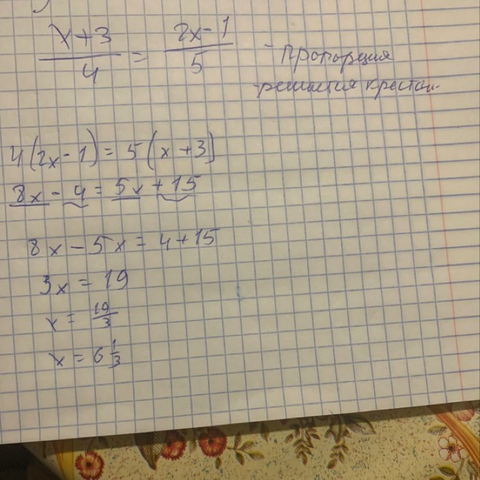 x+3/4 = 2x-1/5 - пропорция
-решается крестом
4(2x-1) = 5(x+3)
8x - 4 = 5x + 15
8x - 5x = 4+15
3x = 19
x = 19/3
x = 6 1/3